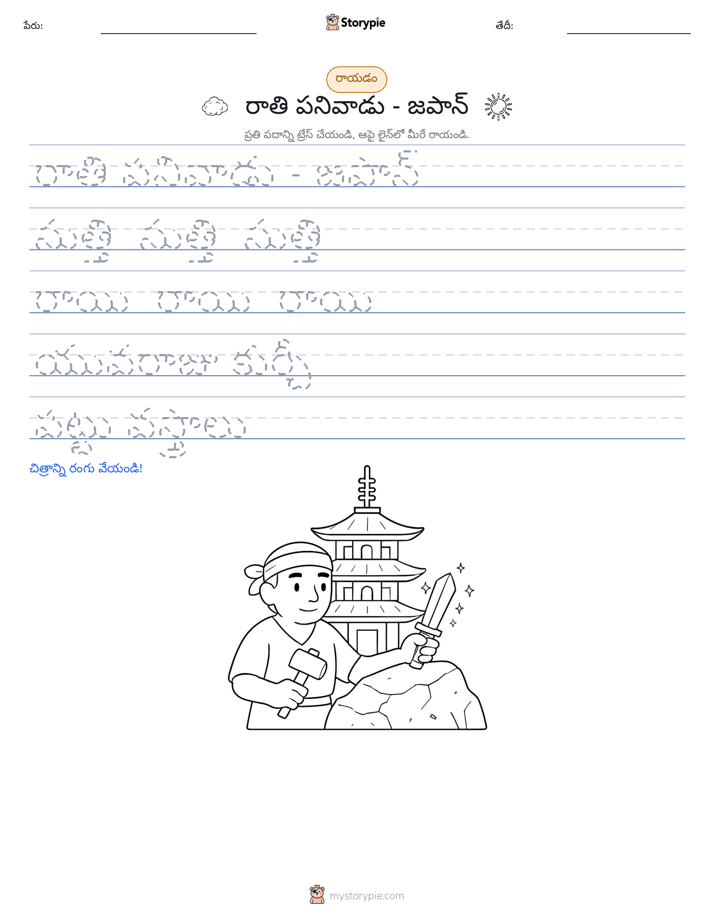 పేరు: Storypie తేదీ:
రాయడం
రాతి పనివాడు - జపాన్
ప్రతి పదాన్ని ట్రేస్ చేయండి, ఆపై లైన్‌లో మీరే రాయండి.
రాతి పనివాడు - జపాన్
సుత్తి సుత్తి సుత్తి
రాయి రాయి రాయి
యువరాజు కుర్చీ
పట్టు వస్త్రాలు
చిత్రాన్ని రంగు వేయండి!
mystorypie.com